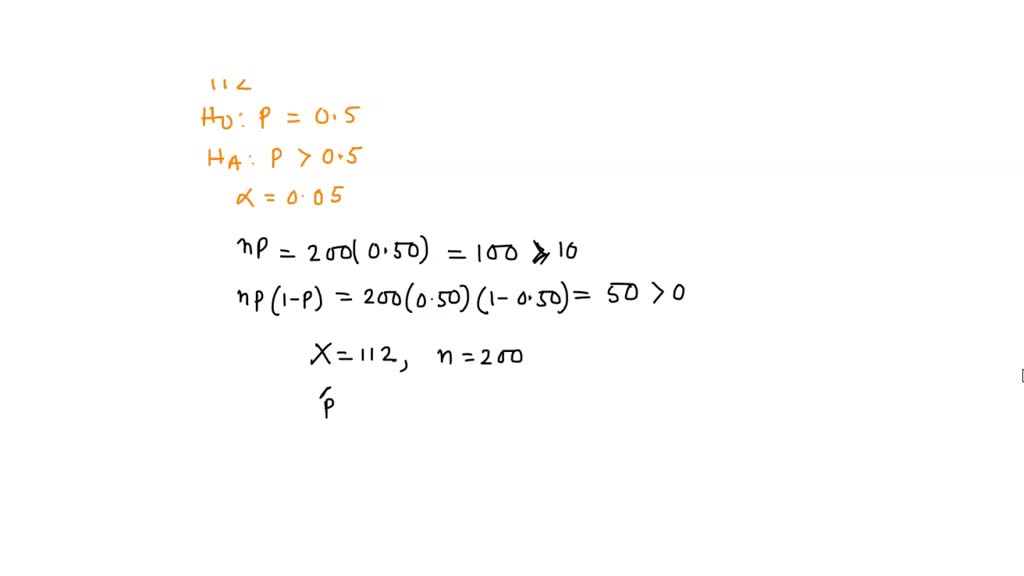 112
H0: P = 0.5
HA: P > 0.5
α = 0.05
np = 200(0.50) = 100 > 10
np(1-p) = 200(0.50)(1-0.50) = 50 > 0
X = 112, n = 200
p̂